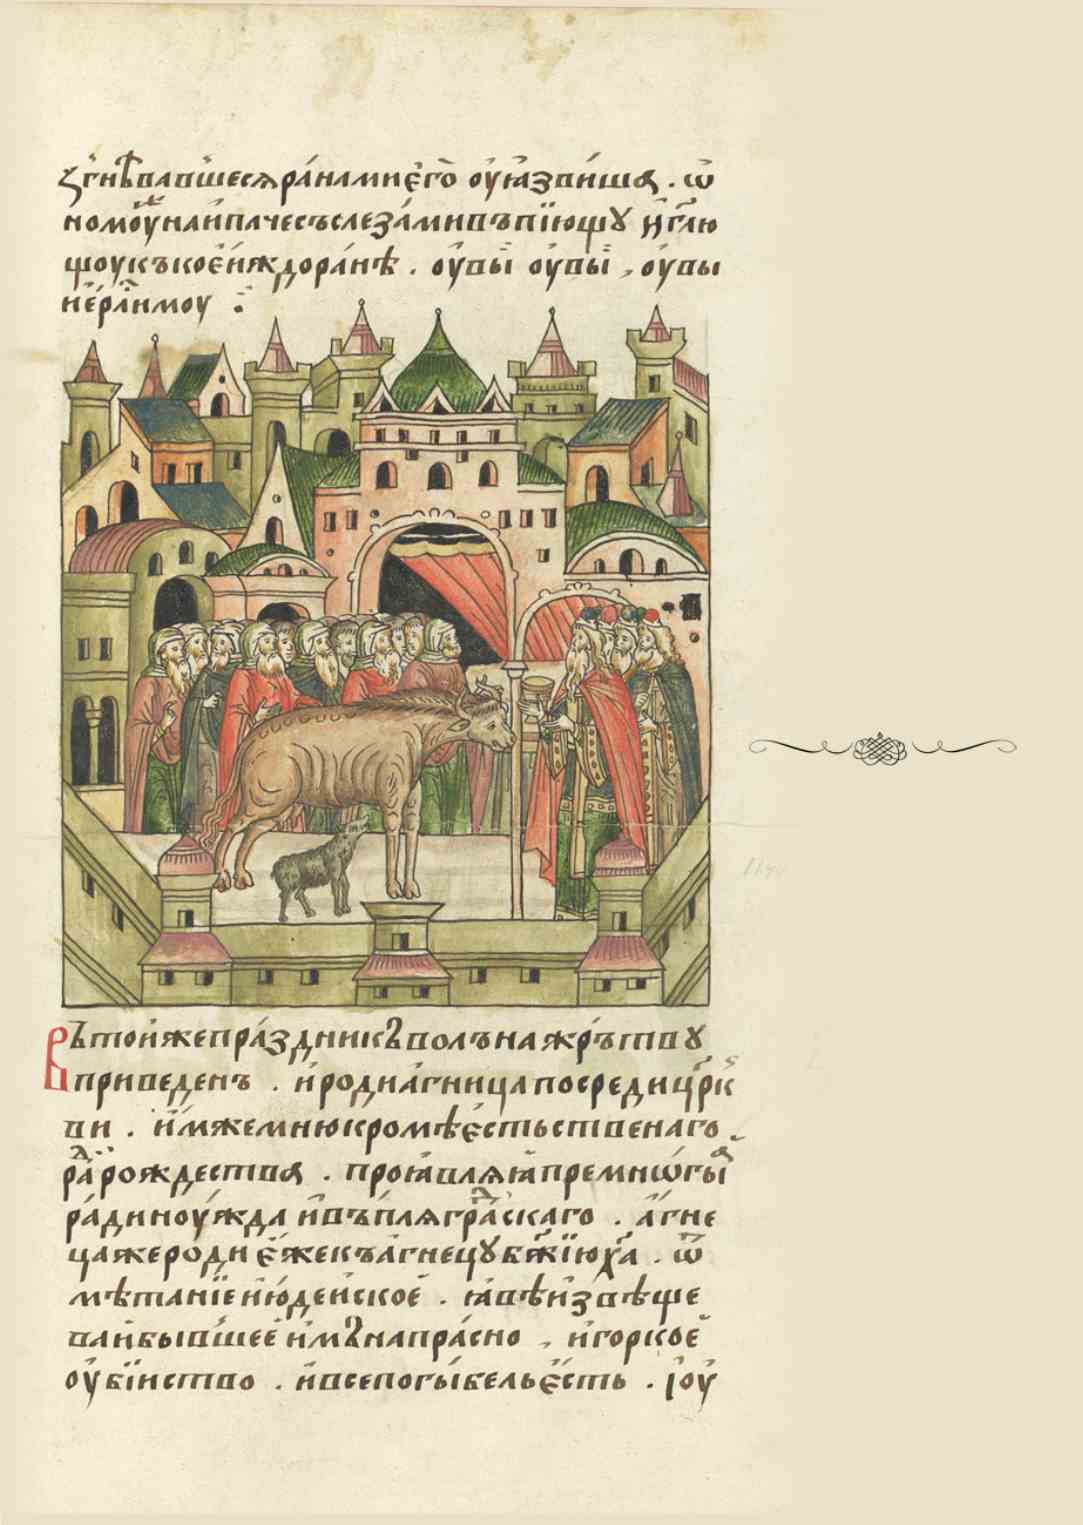 згнѣвавшеся ра́нами є҆го̀ оу҆ꙗзви́ша . ѡ҆
номоу҆ наи паче съ слеза́ми въпїю́щꙋ и҆ гл҃ю
щоу къ коє́иждо ра́нѣ . оу҆вы̀ оу҆вы̀ , оу҆вы
иє҆рл҃имоу :
Въ тоиже пра́здникъ волъ на жрь́твꙋ
приведенъ . и҆ роди а҆гница посреди цр҃к
ви . и҆мже мню кромѣ є҆стьственаго
ра рождества . проꙗвлѧꙗ премнѡгы
ра́ди ноу́жда и҆ въплѧ гра́дскаго . а҆гне
ца же роди є҆же къ а҆гнецꙋ бж҃їю хꙋ҃ . ѿ
мѣтанїе и҆ю҆деиское . ꙗ҆вѣ и҆звѣще
ва и҆ бывшеє и҆мъ напра́сно , и҆ горкоє
оу҆бїиство . и҆ все погы́бель є҆сть . і҆оу